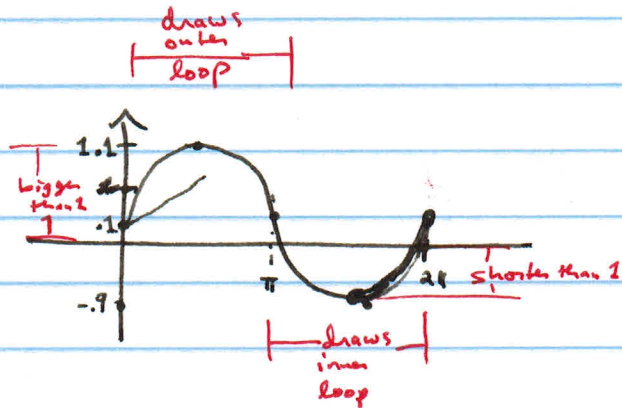 draws
outer
loop
1.1
bigger
than 1
.1
π
2π
shorter than 1
-.9
draws
inner
loop